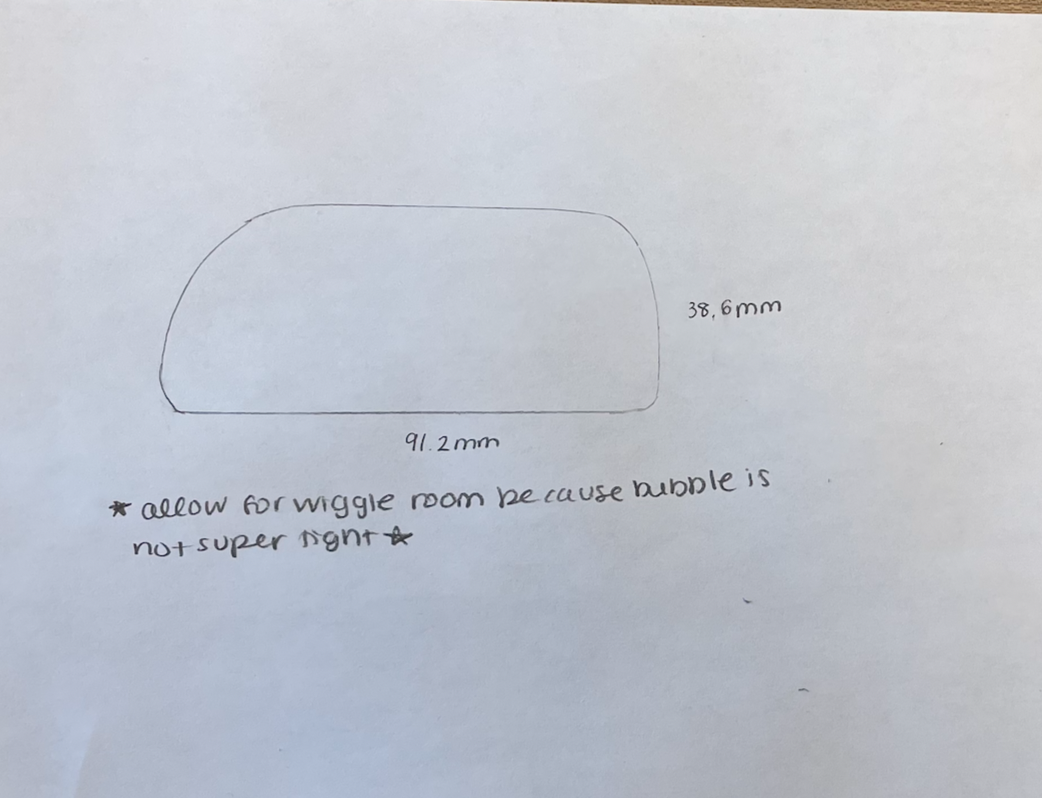 38,6mm
91.2mm
* allow for wiggle room because bubble is
not super tight *